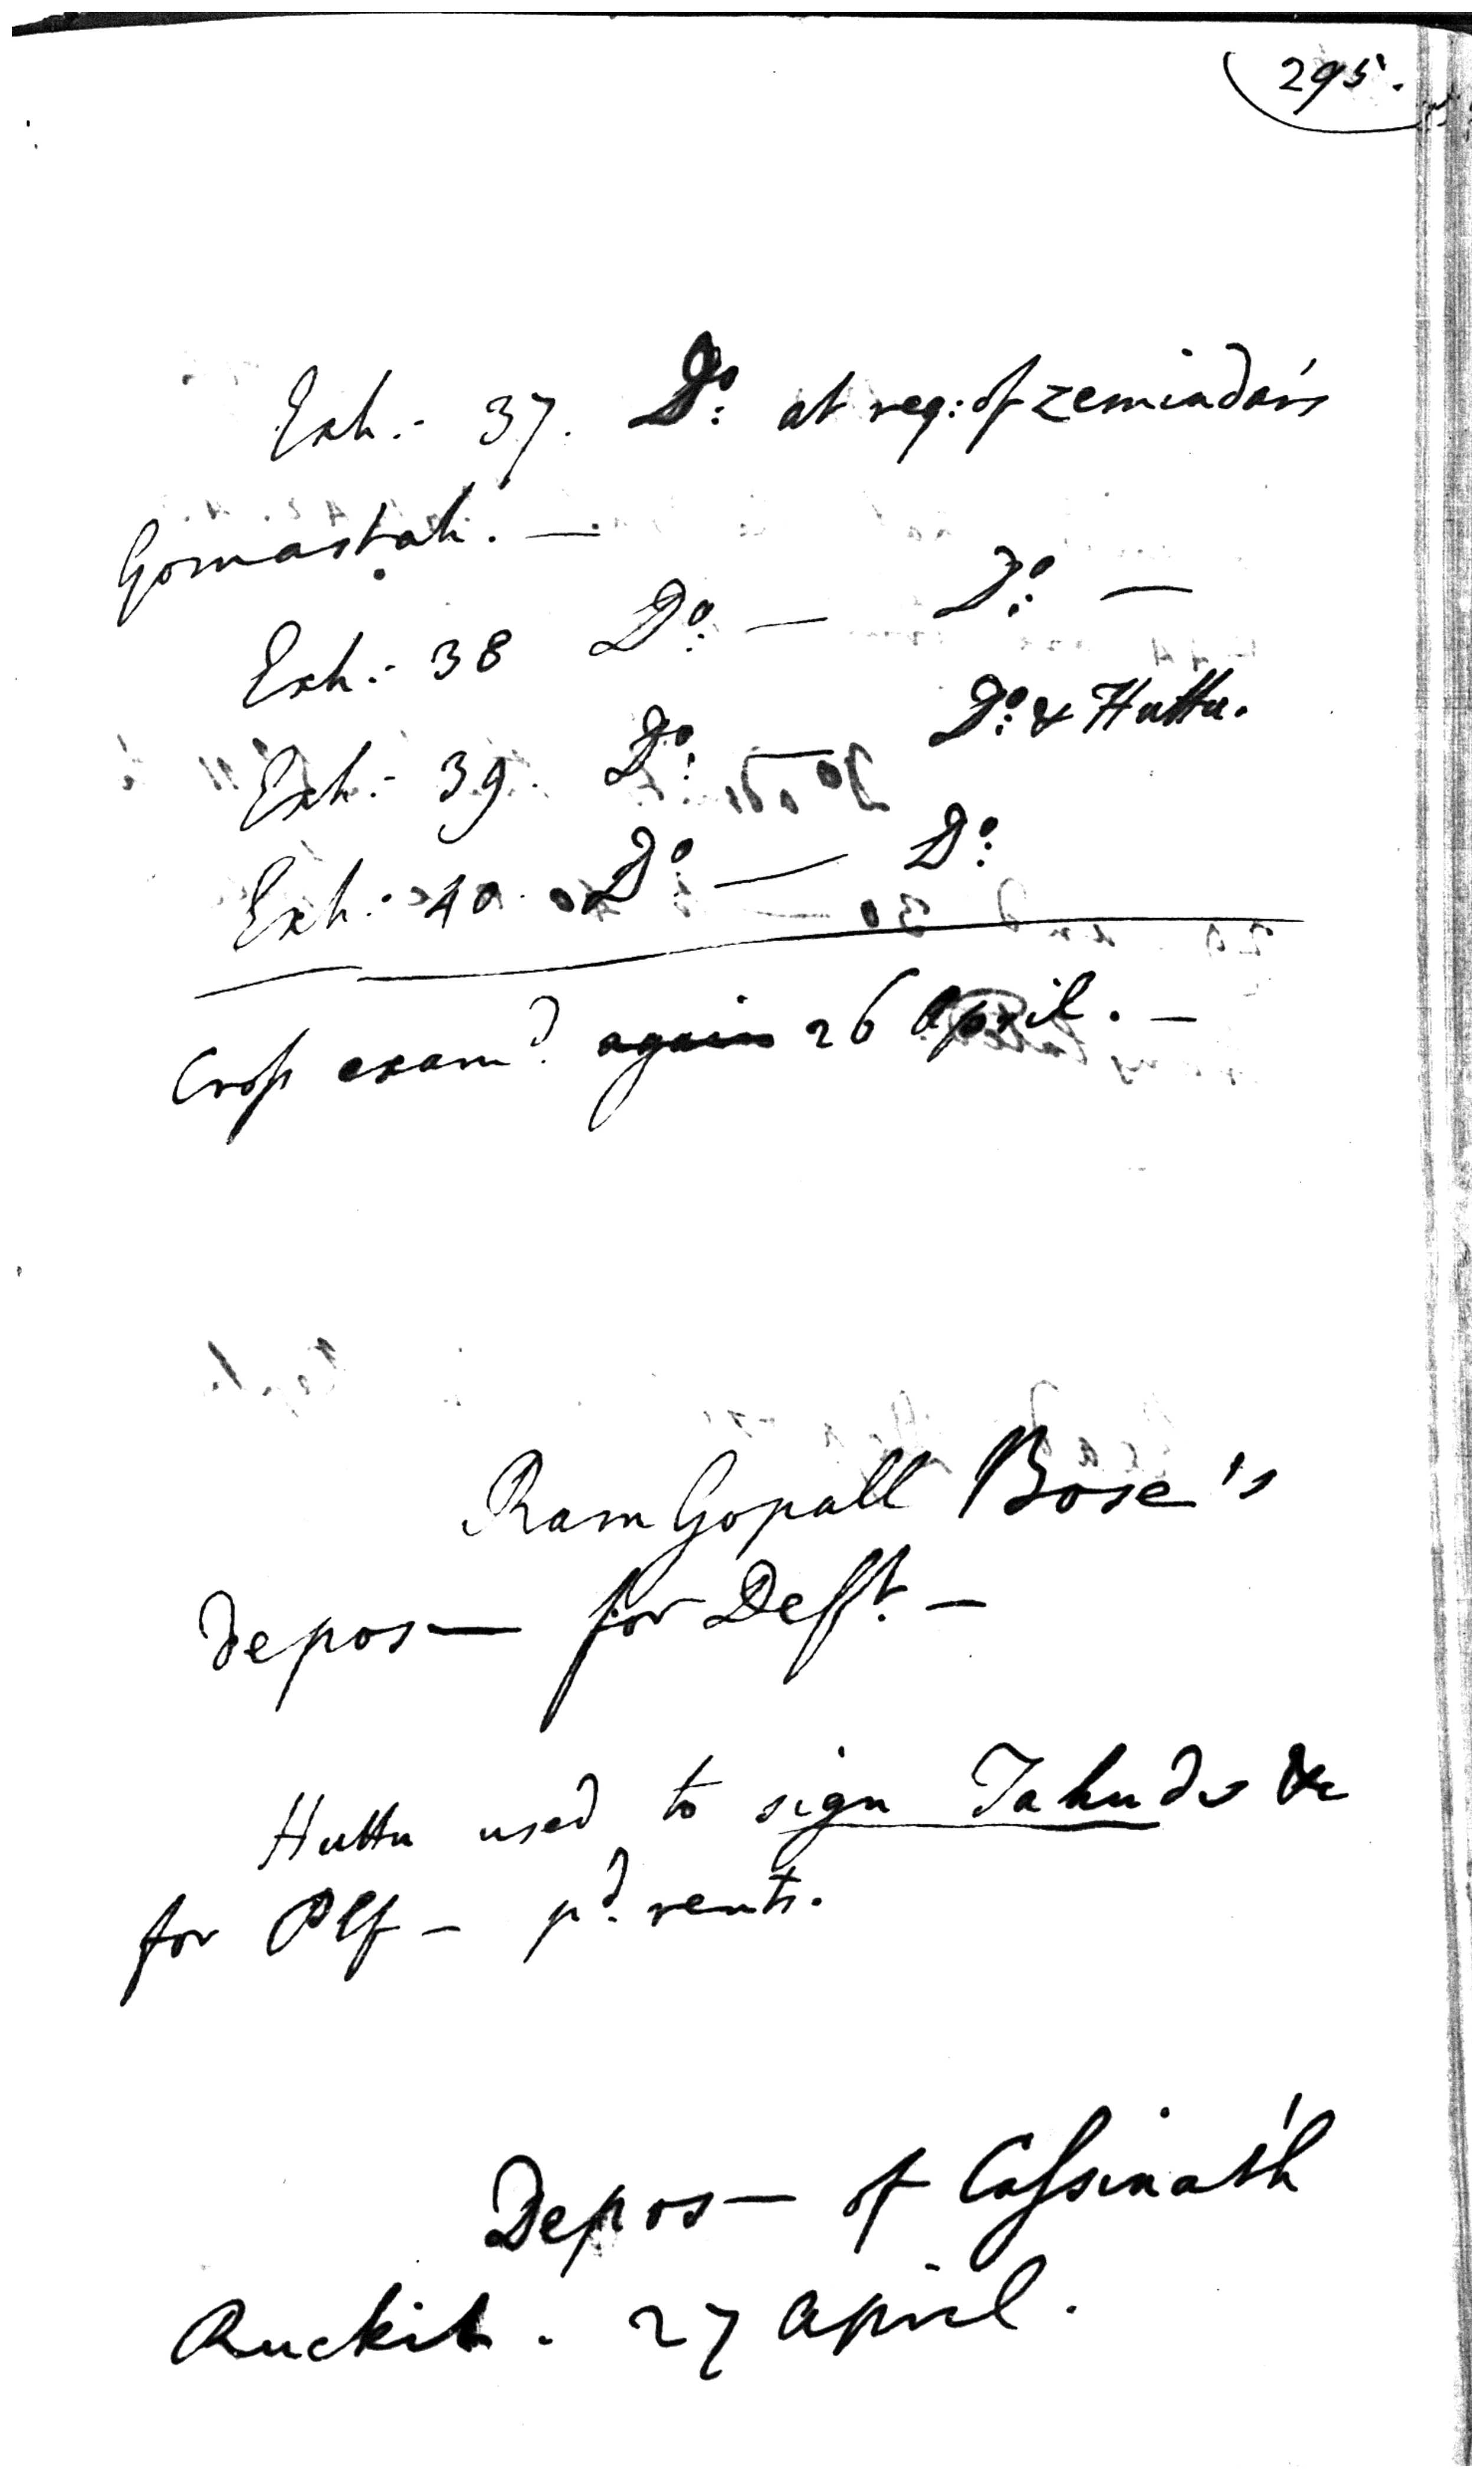 295.
Exh:- 37. Do: at req: of zemindar's
Gomastah. —
Exh:- 38 Do: — Do: —
Exh:- 39. Do: — Do: & Huttu.
Exh:- 40. Do — Do:
Cross examd. again 26 April. —
Ram Gopall Bose's
depos— for Defft. —
Huttu used to sign Tahuds &c
for Plf — pd. rents.
Depos— of Cassinath
Ruckit. 27 April.